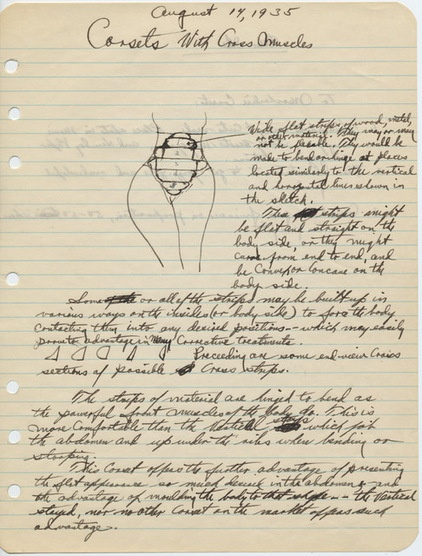 August 14, 1935
Corsets With Cross Muscles
Wide flat strips of wood, metal,
or other material. They may or may
not be flexible. They would be
made to bend or hinge at places
located similarly to the vertical
and horizontal lines shown in
the sketch.
These strips might
be flat and straight on the
body side, or they might
curve from end to end, and
be Convex or Concave on the
body side.
Some or all of the strips may be built up in
various ways on the insides (or body side) to force the body
contacting them into any desired positions - which may easily
prove to advantage in many Corrective treatments.
Preceeding are some end-view Cross
sections of possible Cross strips.
The strips of material are hinged to bend as
the powerful front muscles of the body do. This is
more Comfortable than the Vertical stays which
the abdomen and up under the ribs when bending or
stooping.
This Corset offers the further advantage of presenting
the flat appearance so much desired in the abdomen and
the advantage of moulding the body to that shape -- the Vertical
stayed, nor no other Corset on the market offers such
advantage.